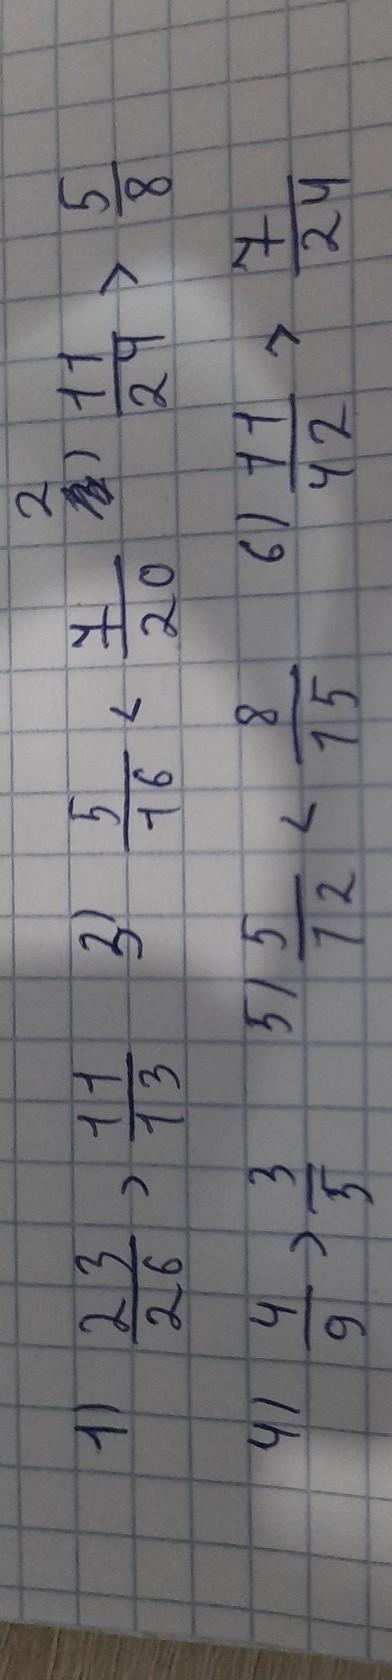 1) 23/26 > 11/13 3) 5/16 < 7/20 2) 11/24 > 5/8
4) 4/9 > 3/5 5) 5/12 < 8/15 6) 11/42 > 7/24